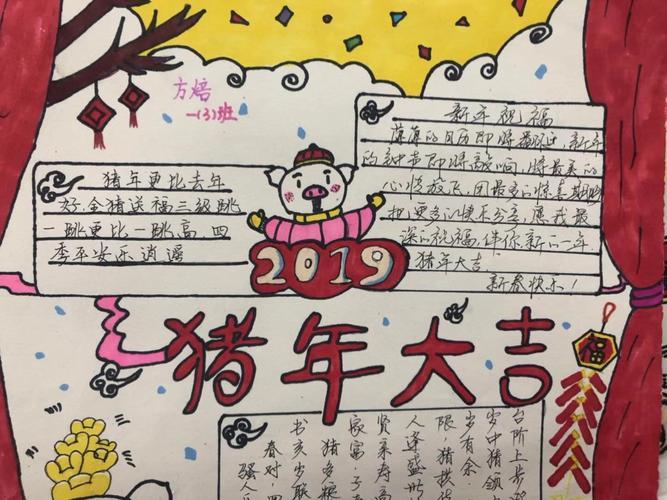 方焙
一(3)班
猪年更比去年
好金猪送福三级跳
一跳更比一跳高 四
季平安乐逍遥
新年祝福
薄薄的日历即将翻过 新年
的钟声即将敲响,将最美的
心情放飞
把 快乐分享,愿我最
深的祝福,伴你新的一年
猪年大吉
新春快乐!
2019
猪年大吉
福
台阶上步
岁中猪领
岁有余
限,猪拱
人逢盛世
贤亲寿高
家富,子
猪多粮
书亥岁联
春对
强人